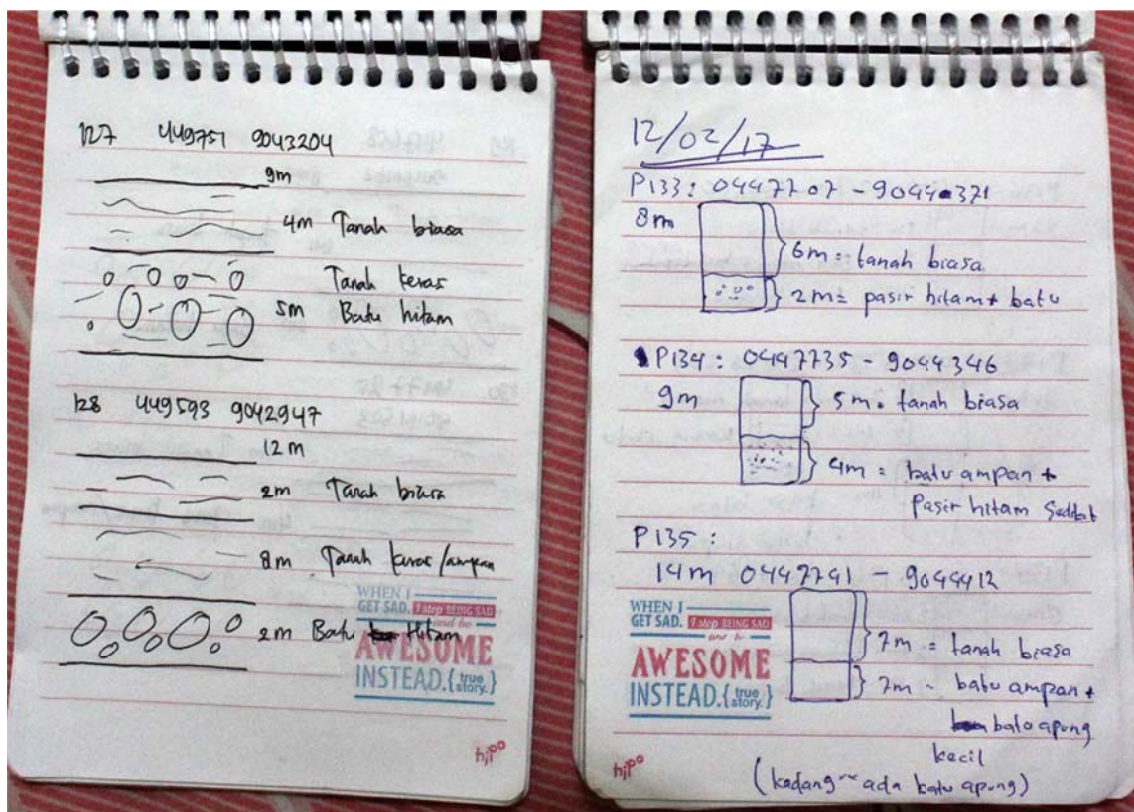 127 449751 9043204
9m
4m Tanah biasa
Tanah keras
5m Batu hitam
128 449593 9042947
12 m
2m Tanah biasa
8m Tanah keras/ampan
2m Batu Hitam
WHEN I
GET SAD. I stop BEING SAD
and be
AWESOME
INSTEAD. { true story. }
hipo
12/02/17
P133: 0447707 - 9044371
8m
6m = tanah biasa
2m = pasir hitam + batu
P134: 0447735 - 9044346
9m
5m = tanah biasa
4m = batu ampan +
Pasir hitam Sedikit
P135:
14m 0447741 - 9044412
7m = tanah biasa
7m = batu ampan +
batu apung
kecil
(kadang~ ada batu apung)
WHEN I
GET SAD. I stop BEING SAD
and be
AWESOME
INSTEAD. { true story. }
hipo